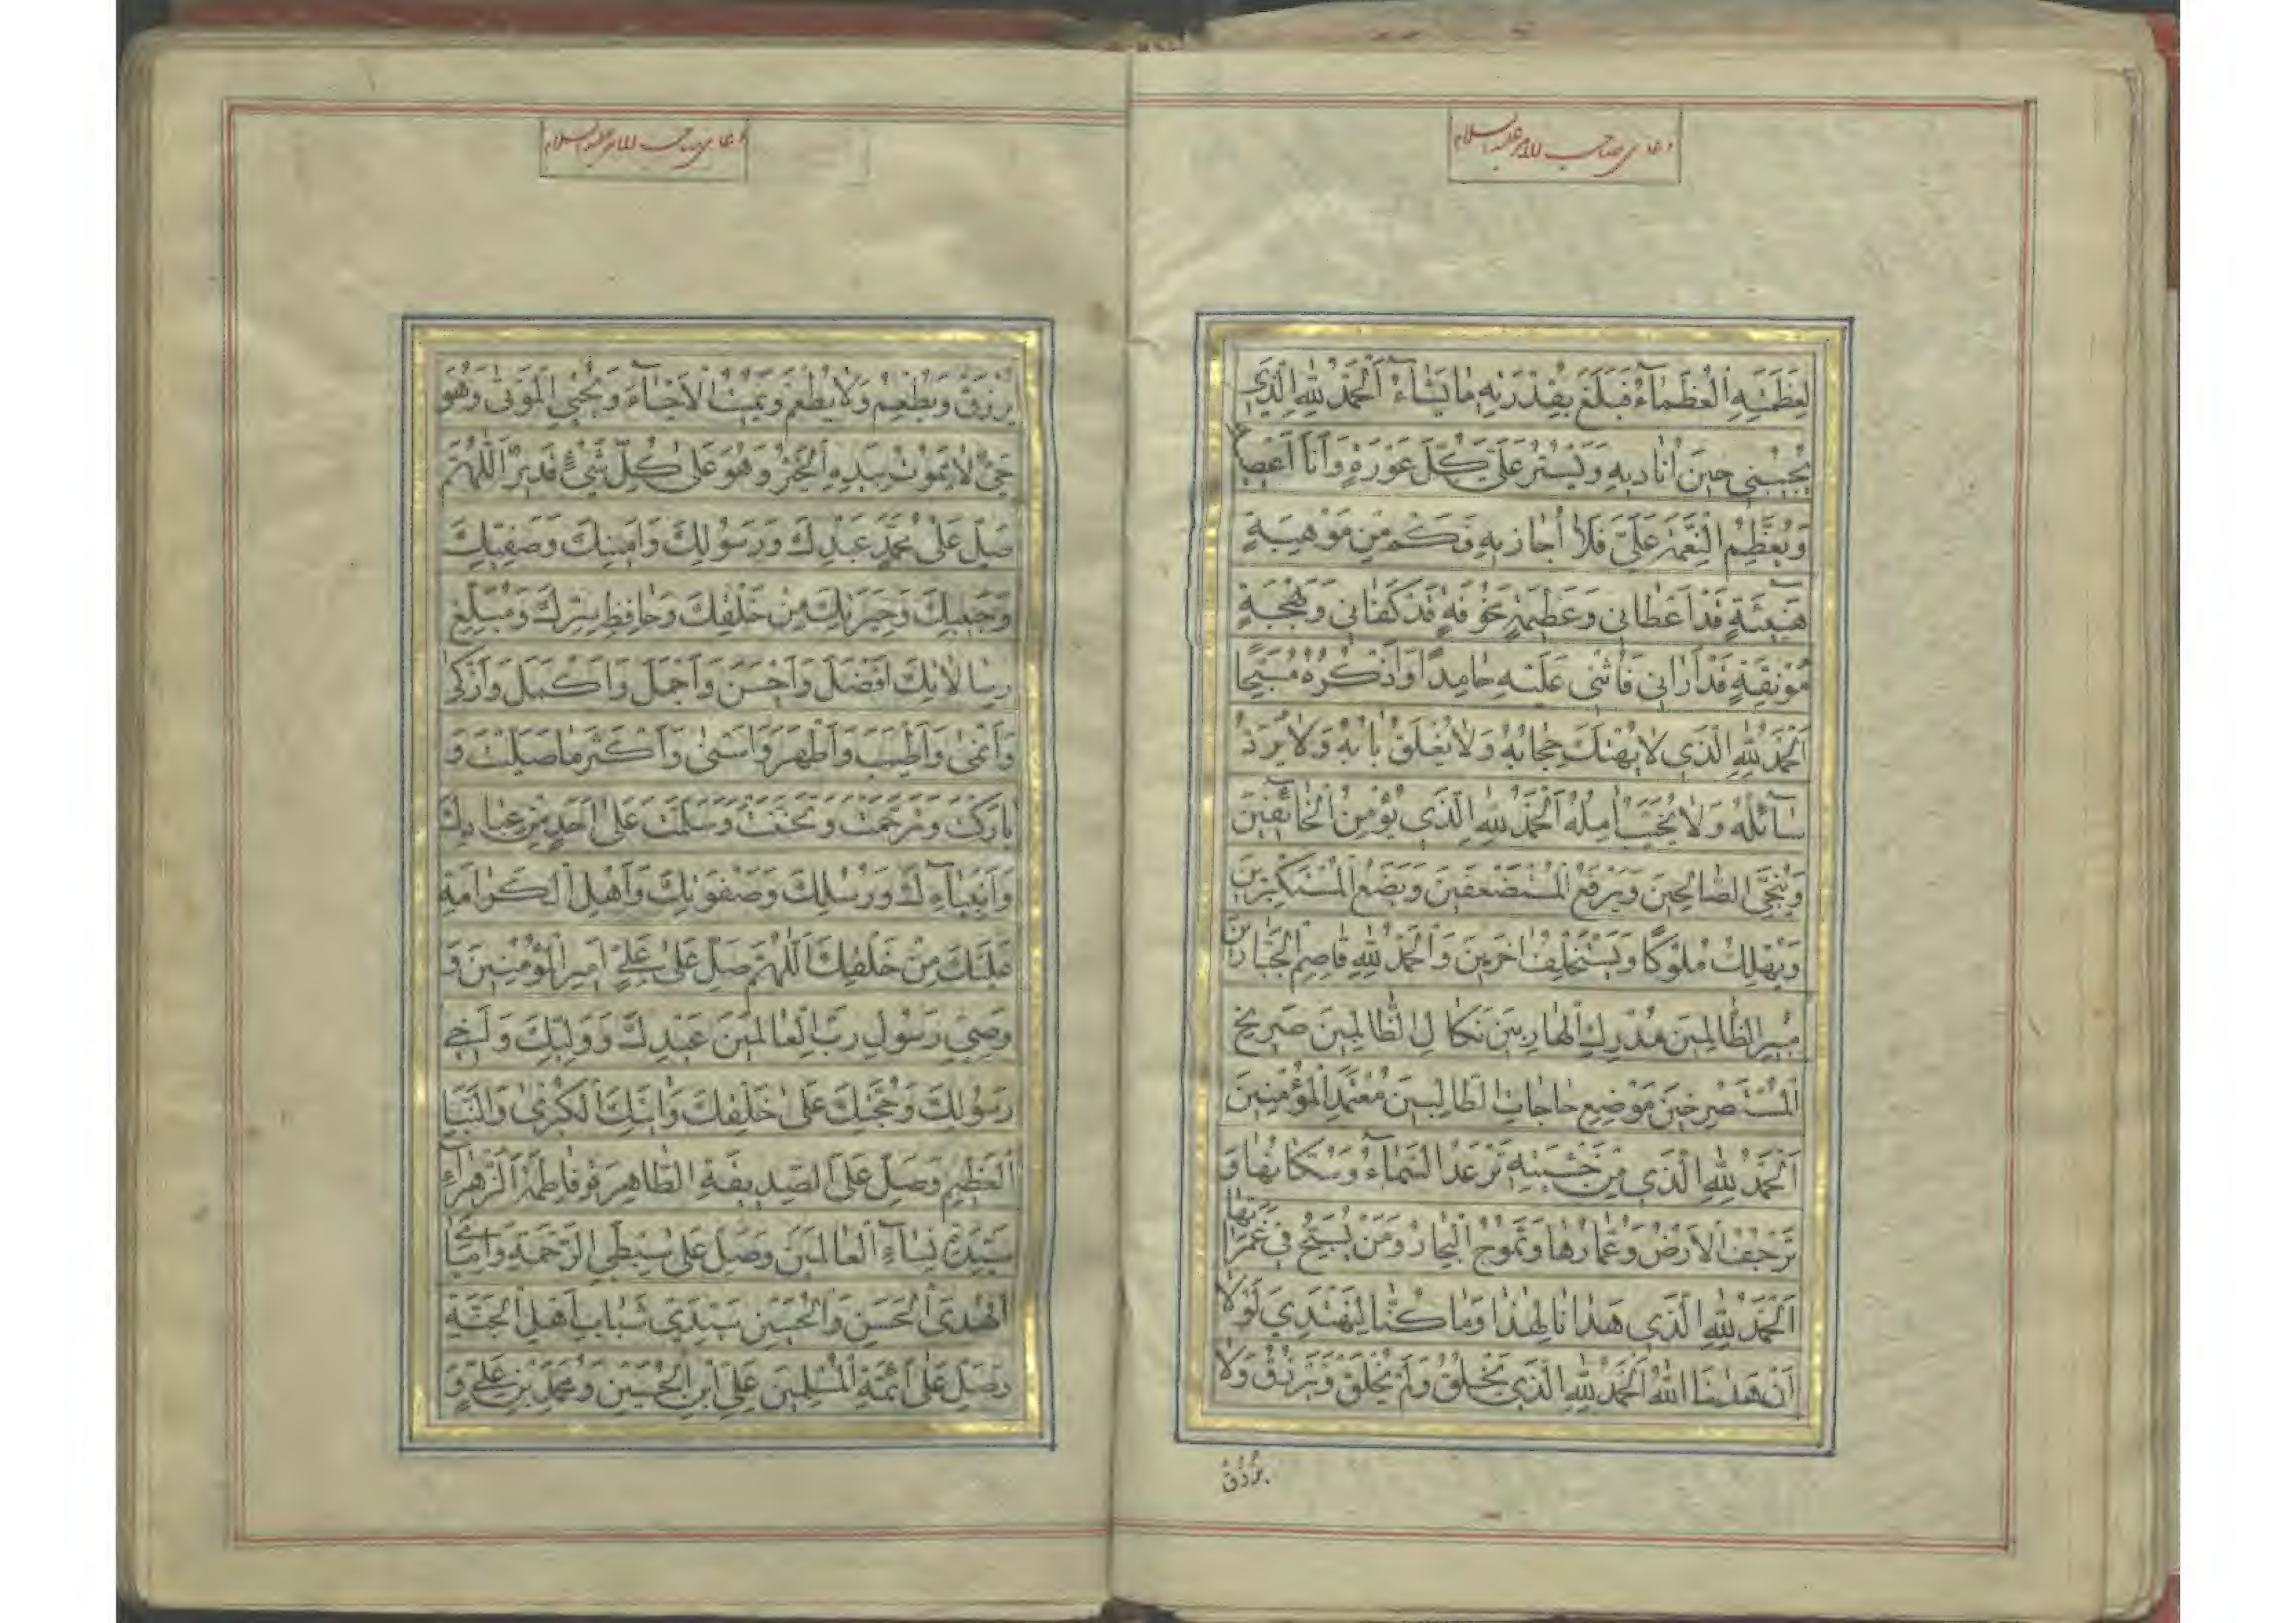 دعای صاحب الامر علیه السلام
لِعَظَمَتِهِ الْعُظَمَآءُ فَبَلَغَ بِقُدْرَتِهِ مٰا يَشٰآءُ اَلْحَمْدُ لِلّٰهِ الَّذي
يُجيبُني حينَ اُناديهِ وَيَسْتُرُ عَلَيَّ كُلَّ عَوْرَةٍ وَاَنَا اَعْصيهِ
وَيُعَظِّمُ النِّعْمَةَ عَلَيَّ فَلاٰ اُجازيهِ فَكَمْ مِنْ مَوْهِبَةٍ
هَنيئَةٍ قَدْ اَعْطاني وَعَظيمَةٍ مَخُوفَةٍ قَدْ كَفٰاني وَبَهْجَةٍ
مُونِقَةٍ قَدْ اَراني فَاُثْني عَلَيْهِ حٰامِدًا وَاَذْكُرُهُ مُسَبِّحًا
اَلْحَمْدُ لِلّٰهِ الَّذي لاٰ يُهْتَكُ حِجٰابُهُ وَلاٰ يُغْلَقُ بٰابُهُ وَلاٰ يُرَدُّ
سٰآئِلُهُ وَلاٰ يُخَيَّبُ اٰمِلُهُ اَلْحَمْدُ لِلّٰهِ الَّذي يُؤْمِنُ الْخٰآئِفينَ
وَيُنَجِّي الصّٰالِحينَ وَيَرْفَعُ الْمُسْتَضْعَفينَ وَيَضَعُ الْمُسْتَكْبِرينَ
وَيُهْلِكُ مُلُوكًا وَيَسْتَخْلِفُ اٰخَرينَ وَالْحَمْدُ لِلّٰهِ قٰاصِمِ الْجَبّٰارينَ
مُبيرِ الظّٰالِمينَ مُدْرِكِ الْهٰارِبينَ نَكٰالِ الظّٰالِمينَ صَريخِ
الْمُسْتَصْرِخينَ مَوْضِعِ حٰاجٰاتِ الطّٰالِبينَ مُعْتَمَدِ الْمُؤْمِنينَ
اَلْحَمْدُ لِلّٰهِ الَّذي مِنْ خَشْيَتِهِ تَرْعَدُ السَّمٰآءُ وَسُكّٰانُهٰا وَ
تَرْجُفُ الْاَرْضُ وَعُمّٰارُهٰا وَتَمُوجُ الْبِحٰارُ وَمَنْ يَسْبَحُ في غَمَرٰاتِهٰا
اَلْحَمْدُ لِلّٰهِ الَّذي هَدٰانٰا لِهٰذٰا وَمٰا كُنّٰا لِنَهْتَدِيَ لَوْلاٰ
اَنْ هَدٰينَا اللّٰهُ اَلْحَمْدُ لِلّٰهِ الَّذي يَخْلُقُ وَلَمْ يُخْلَقْ وَيَرْزُقُ وَلاٰ
يُرْزَقُ
دعای صاحب الامر علیه السلام
يُرْزَقُ وَيُطْعِمُ وَلاٰ يُطْعَمُ وَيُميتُ الْاَحْيٰآءَ وَيُحْيِي الْمَوْتىٰ وَهُوَ
حَيٌّ لاٰ يَمُوتُ بِيَدِهِ الْخَيْرُ وَهُوَ عَلىٰ كُلِّ شَيْءٍ قَديرٌ اَللّٰهُمَّ
صَلِّ عَلىٰ مُحَمَّدٍ عَبْدِكَ وَرَسُولِكَ وَاَمينِكَ وَصَفِيِّكَ
وَحَبيبِكَ وَخِيَرَتِكَ مِنْ خَلْقِكَ وَحٰافِظِ سِرِّكَ وَمُبَلِّغِ
رِسٰالاٰتِكَ اَفْضَلَ وَاَحْسَنَ وَاَجْمَلَ وَاَكْمَلَ وَاَزْكىٰ
وَاَنْمىٰ وَاَطْيَبَ وَاَطْهَرَ وَاَسْنىٰ وَاَكْثَرَ مٰا صَلَّيْتَ وَ
بٰارَكْتَ وَتَرَحَّمْتَ وَتَحَنَّنْتَ وَسَلَّمْتَ عَلىٰ اَحَدٍ مِنْ عِبٰادِكَ
وَاَنْبِيٰآءِكَ وَرُسُلِكَ وَصَفْوَتِكَ وَاَهْلِ الْكَرٰامَةِ
عَلَيْكَ مِنْ خَلْقِكَ اَللّٰهُمَّ صَلِّ عَلىٰ عَلِيٍّ اَميرِ الْمُؤْمِنينَ وَ
وَصِيِّ رَسُولِ رَبِّ الْعٰالَمينَ عَبْدِكَ وَوَلِيِّكَ وَاَخي
رَسُولِكَ وَحُجَّتِكَ عَلىٰ خَلْقِكَ وَاٰيَتِكَ الْكُبْرىٰ وَالنَّبَإِ
الْعَظيمِ وَصَلِّ عَلَى الصِّدّيقَةِ الطّٰاهِرَةِ فٰاطِمَةَ الزَّهْرٰآءِ
سَيِّدَةِ نِسٰآءِ الْعٰالَمينَ وَصَلِّ عَلىٰ سِبْطَيِ الرَّحْمَةِ وَاِمٰامَيِ
الْهُدىٰ اَلْحَسَنِ وَالْحُسَيْنِ سَيِّدَيْ شَبٰابِ اَهْلِ الْجَنَّةِ
وَصَلِّ عَلىٰ اَئِمَّةِ الْمُسْلِمينَ عَلِيِّ ابْنِ الْحُسَيْنِ وَمُحَمَّدِ بْنِ عَلِيٍّ وَ